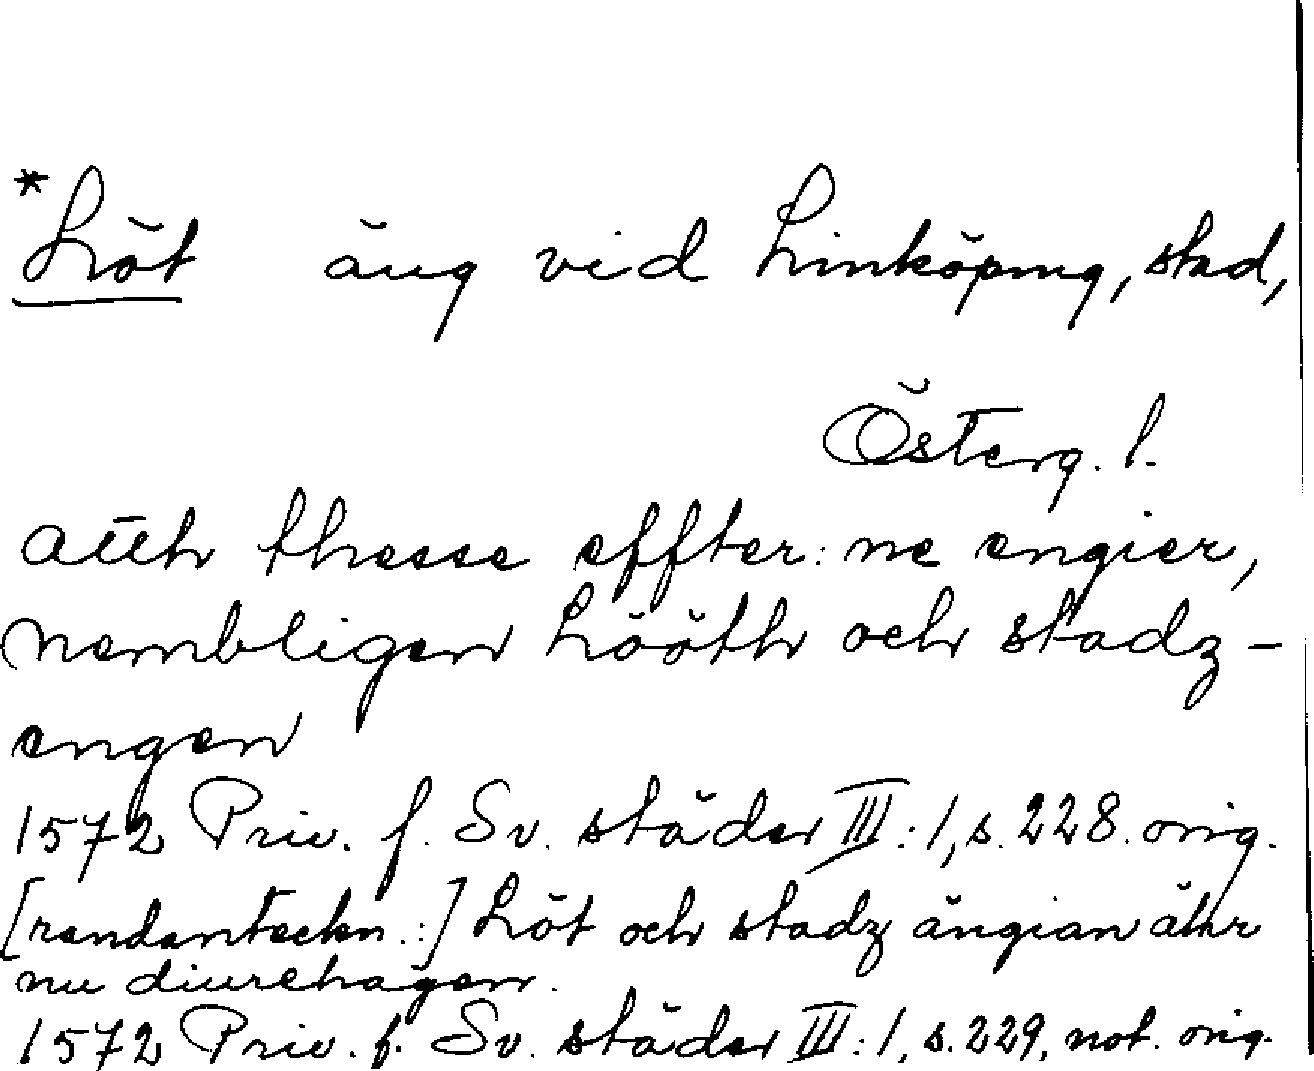 *Löt äng vid Linköping, stad,
Österg. l.
atth thesse effter:ne engier,
nembligen Lööth och stadz-
engen
1572 Priv. f. Sv. städer III:1, s. 228. orig.
[randanteckn.:] Löt och stadz ängian ähr
nu diurehagen.
1572 Priv. f. Sv. städer III:1, s. 229, not. orig.